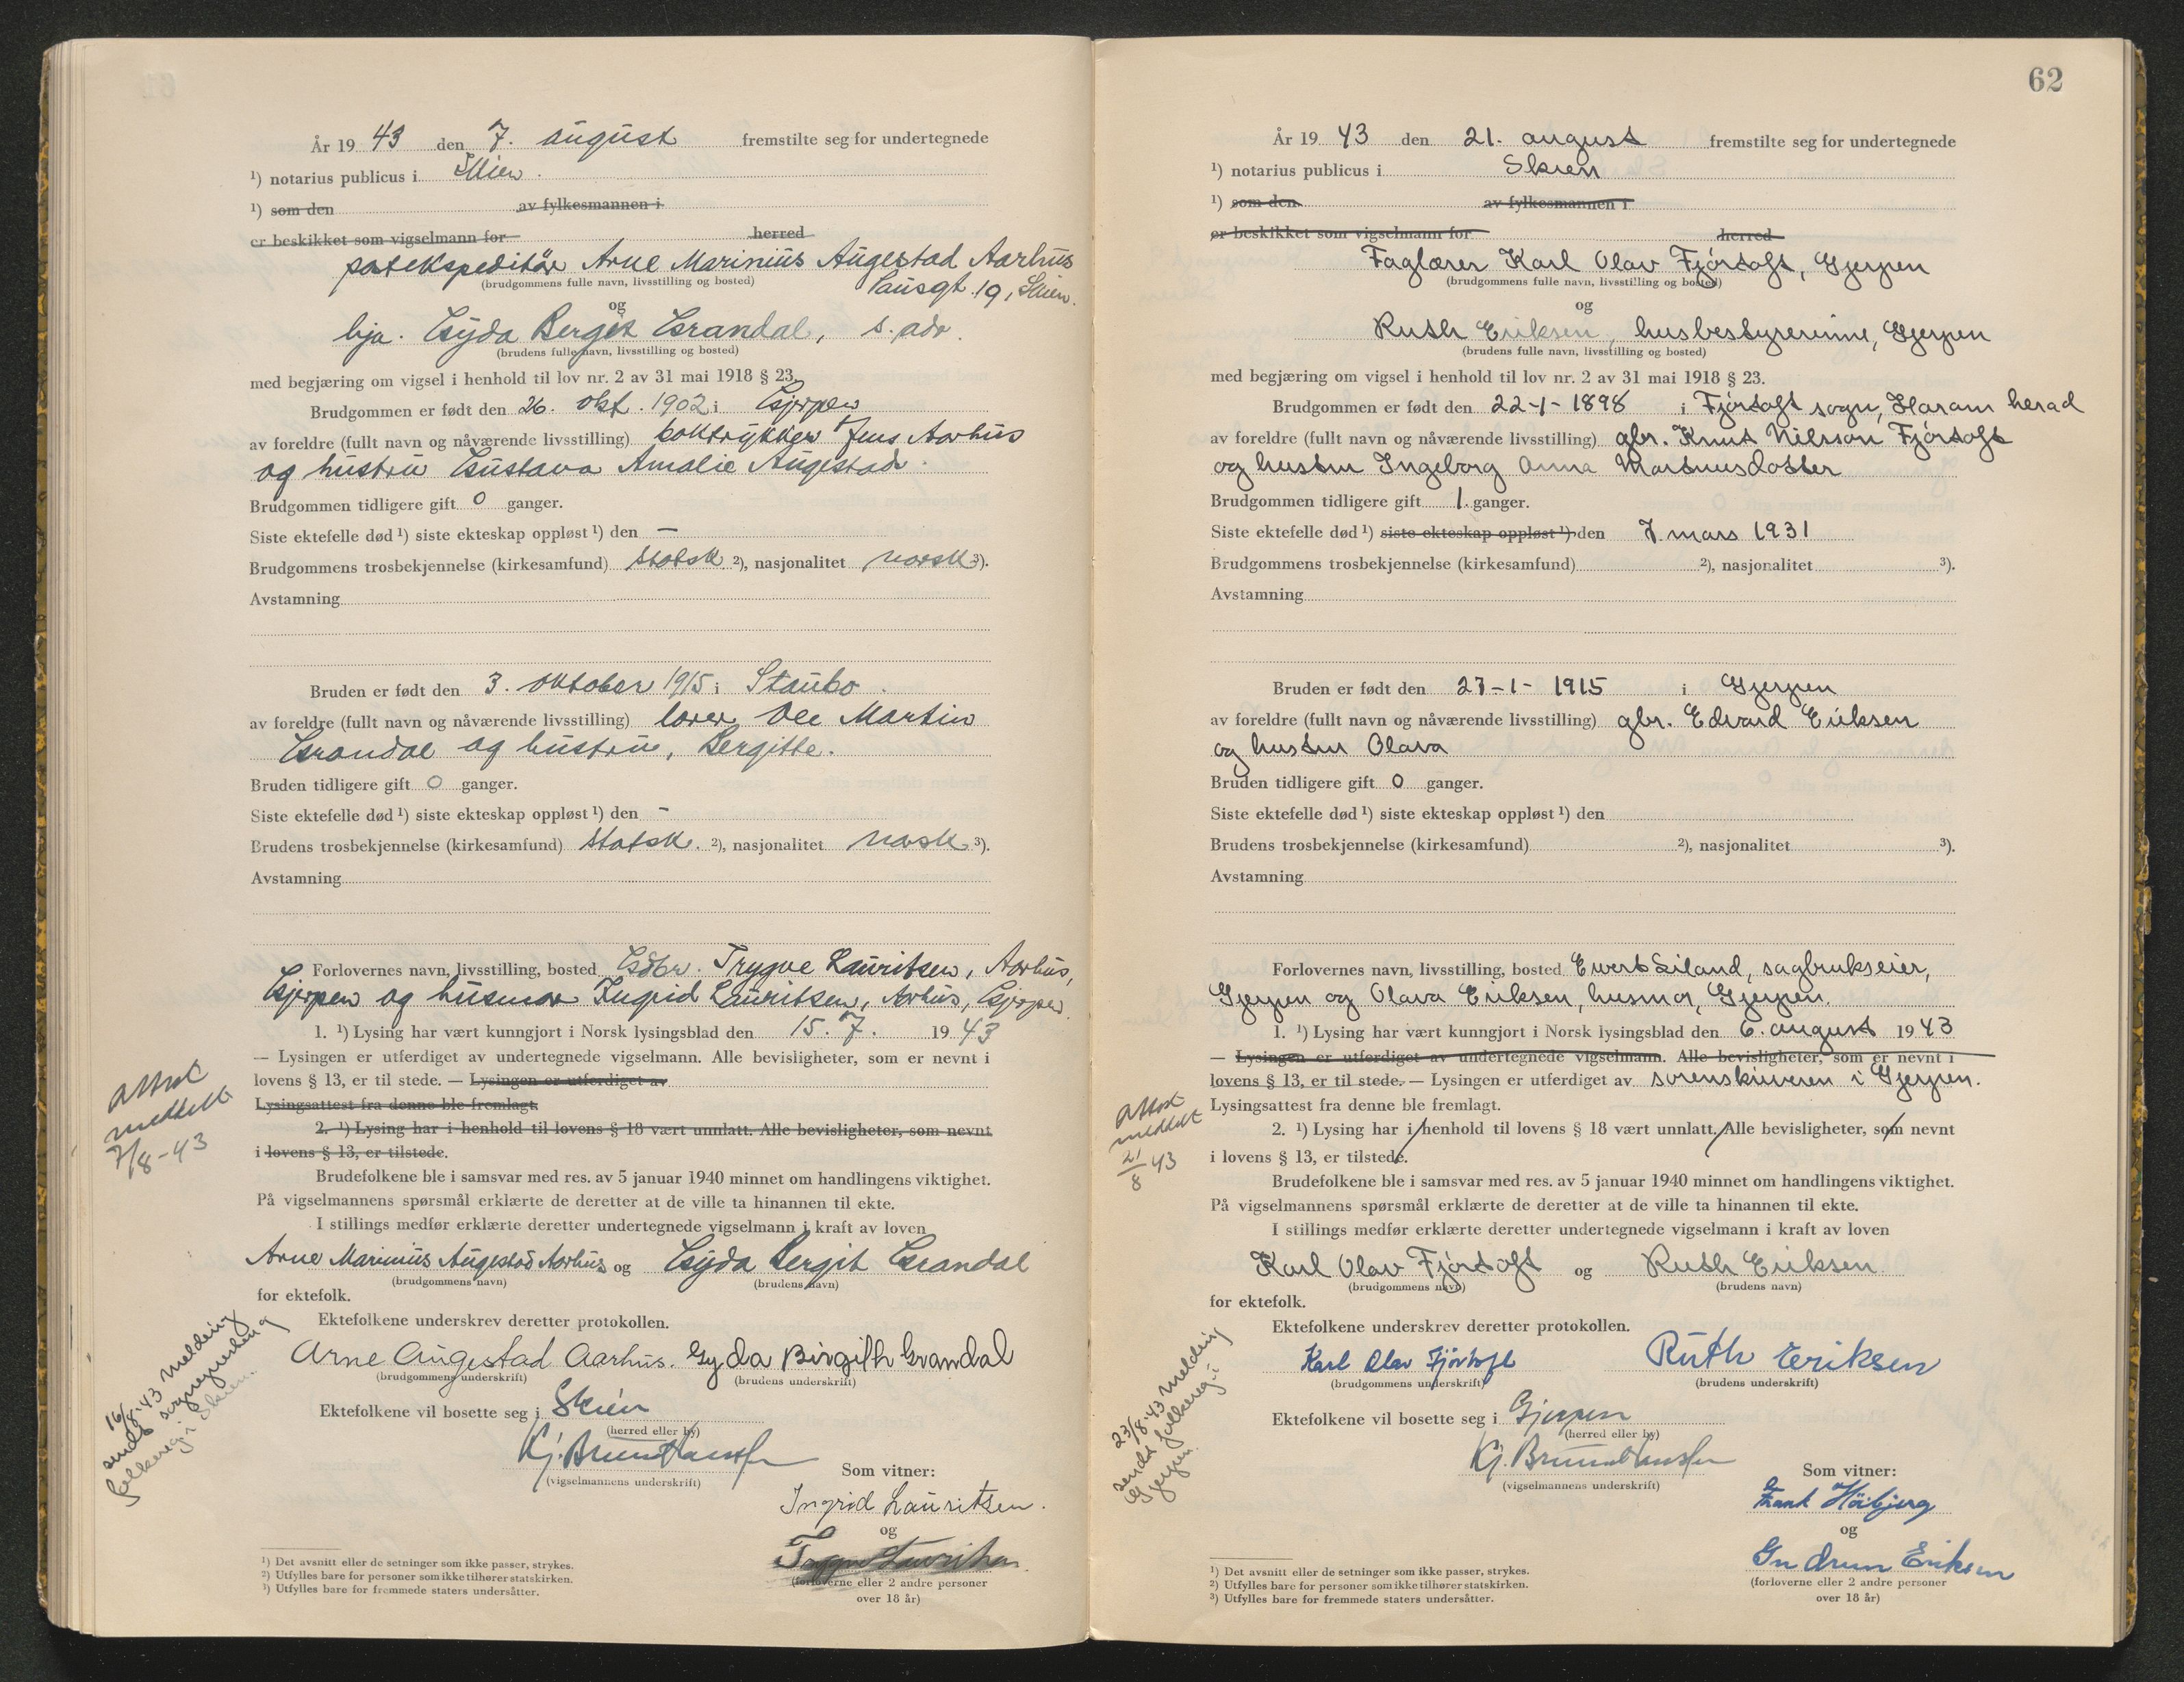 År 19 43 den 7. august fremstilte seg for undertegnede
¹) notarius publicus i Skien.
¹) som den av fylkesmannen i
er beskikket som vigselmann for herred
postekspeditør Arne Marinius Augestad Aarhus
(brudgommens fulle navn, livsstilling og bosted) Pausgt. 19, Skien.
og
hja. Gyda Bergit Grandal, s. adr.
(brudens fulle navn, livsstilling og bosted)
med begjæring om vigsel i henhold til lov nr. 2 av 31 mai 1918 § 23.
Brudgommen er født den 26. okt. 1902 i Gjerpen
av foreldre (fullt navn og nåværende livsstilling) boktrykker Jens Aarhus
og hustru Gustava Amalie Augestad.
Brudgommen tidligere gift 0 ganger.
Siste ektefelle død ¹) siste ekteskap oppløst ¹) den —
Brudgommens trosbekjennelse (kirkesamfund) statsk. ²), nasjonalitet norsk ³).
Avstamning
Bruden er født den 3. oktober 1915 i Staubo.
av foreldre (fullt navn og nåværende livsstilling) lærer Ole Martin
Grandal og hustru, Bergitte.
Bruden tidligere gift 0 ganger.
Siste ektefelle død ¹) siste ekteskap oppløst ¹) den -
Brudens trosbekjennelse (kirkesamfund) statsk. ²), nasjonalitet norsk ³).
Avstamning
Forlovernes navn, livsstilling, bosted Gdbr. Trygve Lauritsen, Aarhus,
Gjerpen og husmor Ingrid Lauritsen, Aarhus, Gjerpen.
1. ¹) Lysing har vært kunngjort i Norsk lysingsblad den 15. 7. 19 43
— Lysingen er utferdiget av undertegnede vigselmann. Alle bevisligheter, som er nevnt i
lovens § 13, er til stede. — Lysingen er utferdiget av
Lysingsattest fra denne ble fremlagt.
2. ¹) Lysing har i henhold til lovens § 18 vært unnlatt. Alle bevisligheter, som nevnt
i lovens § 13, er tilstede.
Attest
meddelt
7/8-43
Brudefolkene ble i samsvar med res. av 5 januar 1940 minnet om handlingens viktighet.
På vigselmannens spørsmål erklærte de deretter at de ville ta hinannen til ekte.
I stillings medfør erklærte deretter undertegnede vigselmann i kraft av loven
Arne Marinius Augestad Aarhus og Gyda Bergit Grandal
(brudgommens navn) (brudens navn)
for ektefolk.
Ektefolkene underskrev deretter protokollen.
Arne Augestad Aarhus. Gyda Birgith Grandal
(brudgommens underskrift) (brudens underskrift)
Ektefolkene vil bosette seg i Skien
(herred eller by)
16/8-43 melding
sendt sognepresten og
folkereg. i Skien.
Kj. Brundtansen
(vigselmannens underskrift)
Som vitner:
Ingrid Lauritsen.
og
Trygve Lauritsen
(forloverne eller 2 andre personer
over 18 år)
¹) Det avsnitt eller de setninger som ikke passer, strykes.
²) Utfylles bare for personer som ikke tilhører statskirken.
³) Utfylles bare for fremmede staters undersåtter.
62
År 19 43 den 21. august fremstilte seg for undertegnede
¹) notarius publicus i Skien
¹) som den av fylkesmannen i
er beskikket som vigselmann for herred
Faglærer Karl Olav Fjørtoft, Gjerpen
(brudgommens fulle navn, livsstilling og bosted)
og
Ruth Eriksen, husbestyrerinne, Gjerpen
(brudens fulle navn, livsstilling og bosted)
med begjæring om vigsel i henhold til lov nr. 2 av 31 mai 1918 § 23.
Brudgommen er født den 22-1-1898 i Fjørtoft sogn, Haram herad
av foreldre (fullt navn og nåværende livsstilling) gbr. Knut Nilsson Fjørtoft
og hustru Ingeborg Anna Martinusdotter
Brudgommen tidligere gift 1. ganger.
Siste ektefelle død ¹) siste ekteskap oppløst ¹) den 7. mars 1931
Brudgommens trosbekjennelse (kirkesamfund) ²), nasjonalitet ³).
Avstamning
Bruden er født den 27-1-1915 i Gjerpen
av foreldre (fullt navn og nåværende livsstilling) gbr. Edvard Eriksen
og hustru Olava
Bruden tidligere gift 0 ganger.
Siste ektefelle død ¹) siste ekteskap oppløst ¹) den
Brudens trosbekjennelse (kirkesamfund) ²), nasjonalitet ³).
Avstamning
Forlovernes navn, livsstilling, bosted Ewert Siland, sagbrukseier,
Gjerpen og Olava Eriksen, husmor, Gjerpen.
1. ¹) Lysing har vært kunngjort i Norsk lysingsblad den 6. august 19 43
— Lysingen er utferdiget av undertegnede vigselmann. Alle bevisligheter, som er nevnt i
lovens § 13, er til stede. — Lysingen er utferdiget av sorenskriveren i Gjerpen.
Lysingsattest fra denne ble fremlagt.
2. ¹) Lysing har i henhold til lovens § 18 vært unnlatt. Alle bevisligheter, som nevnt
i lovens § 13, er tilstede.
Attest
meddelt
21/8 43
Brudefolkene ble i samsvar med res. av 5 januar 1940 minnet om handlingens viktighet.
På vigselmannens spørsmål erklærte de deretter at de ville ta hinannen til ekte.
I stillings medfør erklærte deretter undertegnede vigselmann i kraft av loven
Karl Olav Fjørtoft og Ruth Eriksen
(brudgommens navn) (brudens navn)
for ektefolk.
Ektefolkene underskrev deretter protokollen.
Karl Olav Fjörtoft Ruth Eriksen
(brudgommens underskrift) (brudens underskrift)
Ektefolkene vil bosette seg i Gjerpen
(herred eller by)
23/8-43 melding
sendt folkereg. i
Gjerpen.
(vigselmannens underskrift)
Som vitner:
Frank Höibjerg
og
Gudrun Eriksen
(forloverne eller 2 andre personer
over 18 år)
¹) Det avsnitt eller de setninger som ikke passer, strykes.
²) Utfylles bare for personer som ikke tilhører statskirken.
³) Utfylles bare for fremmede staters undersåtter.